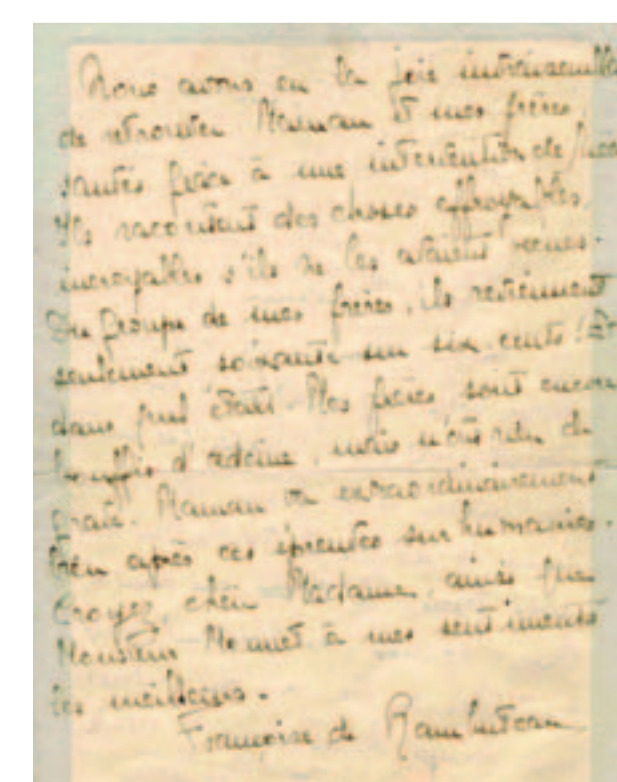 Nous avons eu la joie
de retrouver Maman et mes frères,
sauvés grâce à une intervention de
Ils racontent des choses effroyables,
incroyables s'ils ne les avaient vécues.
Du groupe de mes frères, ils reviennent
seulement soixante sur six cents ! Et
dans quel état. Mes frères sont encore
bouffis d'œdème, mais n'ont rien de
grave. Maman va extraordinairement
bien après ces épreuves surhumaines.
Croyez, chère Madame, ainsi que
Monsieur Monnet à mes sentiments
les meilleurs.
Françoise de Rambuteau